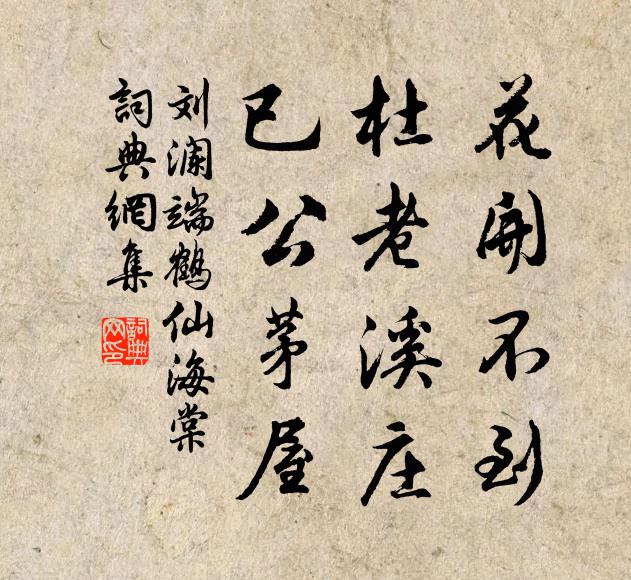 花開不到
杜老溪庄
已公茅屋
刘澜端鶴仙海棠
詞典網集
詞典网印